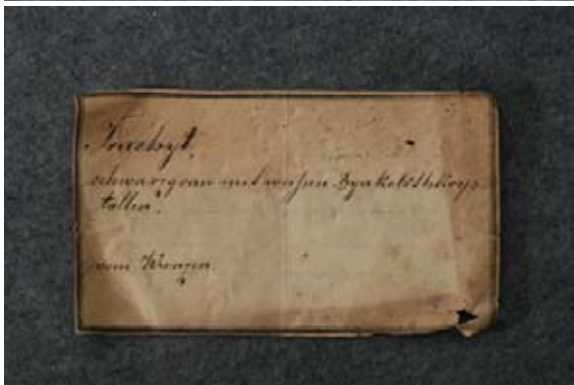 Trachyt,
schwarzgrau mit weißen Ryakolithkrys-
tallen.
vom